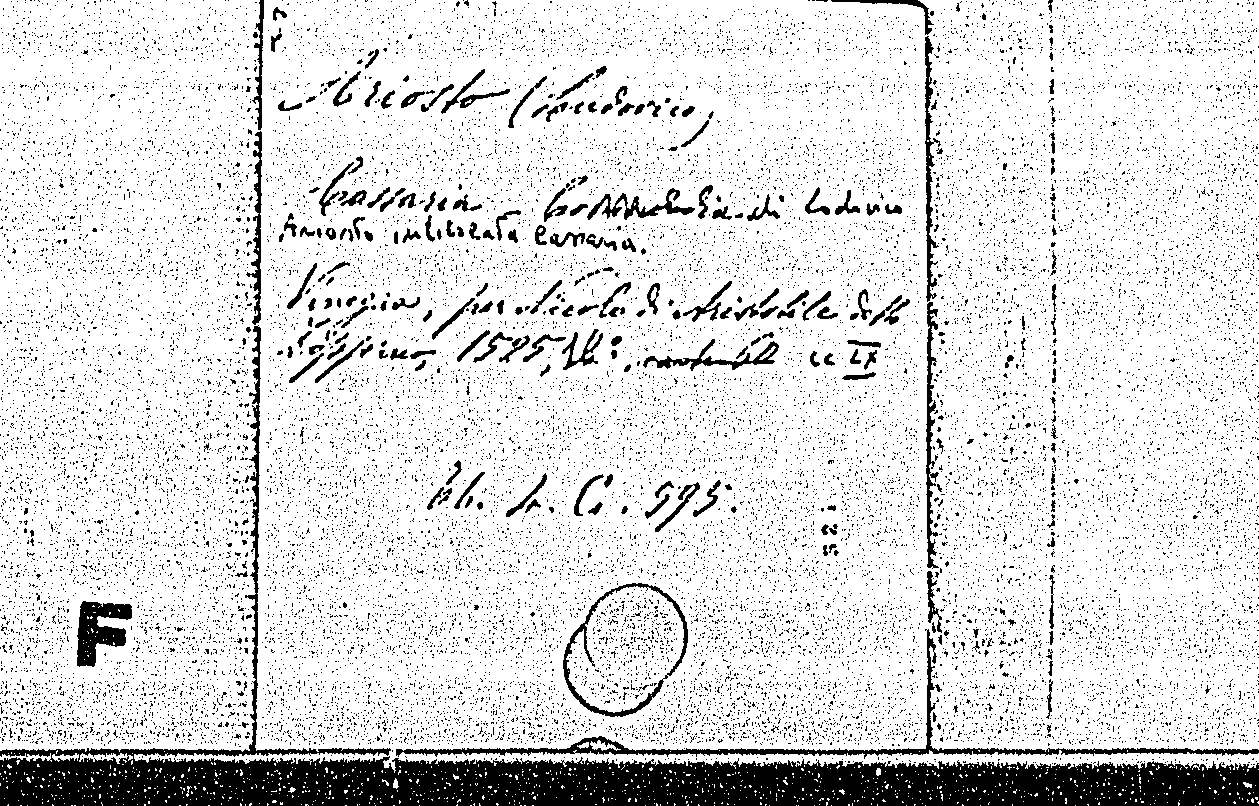 Ariosto (Ludovico)
Cassaria - Commedia di Lodovico
Ariosto intitolata Cassaria.
Vinegia, per Nicolo di Aristotile detto
Zoppino, 1525, cc IX
L. C. 595.
F